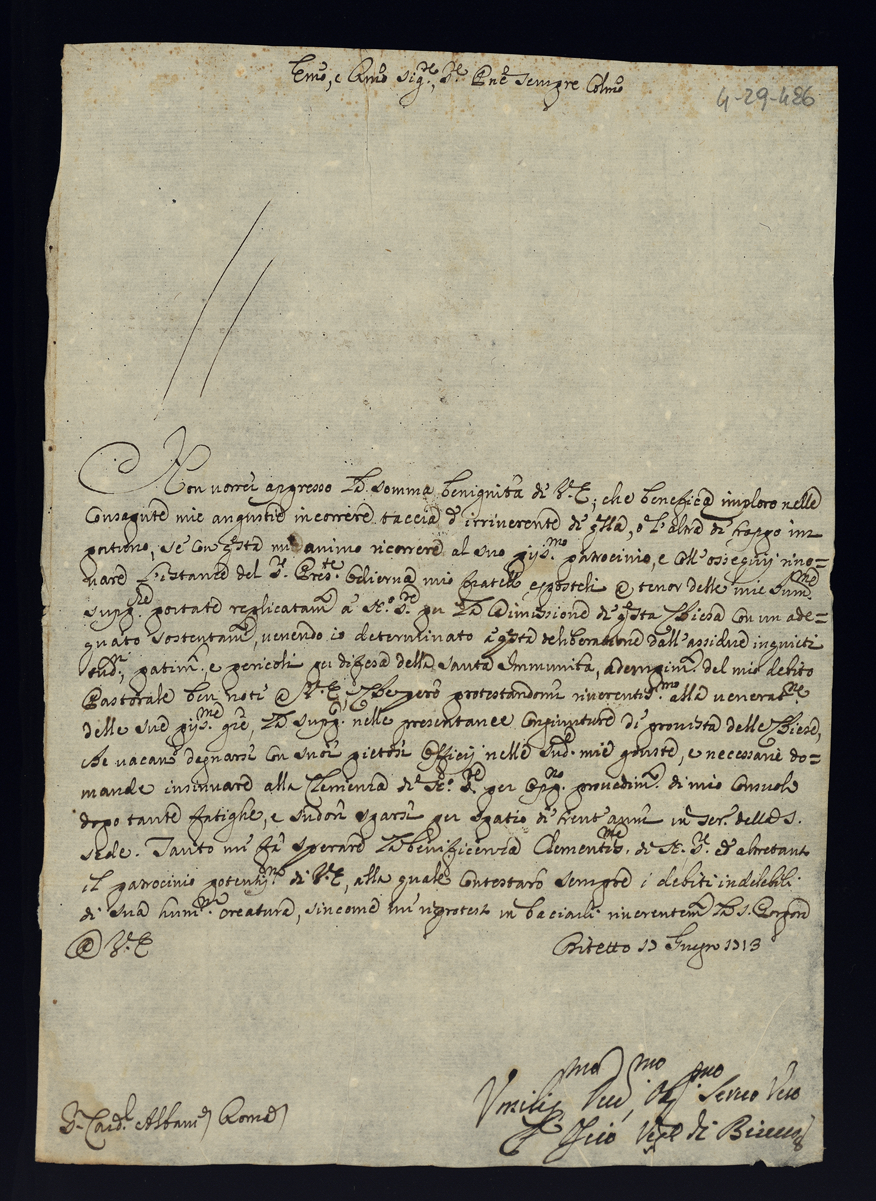 Emo, e Rmo Sigre, Sre Pne sempre Colmo
4-29-426
Non vorrei appresso la somma benignità di V.E; che benefica imploro nelle
consapute mie angustie incorrere taccia d'irriverente di qlla, o l'altra di troppo im
portuno, se con qsta mi animo ricorrere al suo pijs.mo patrocinio, e coll'ossequij rino=
vare l'istanze del Sr. mio fratello, e tenor delle mie
supp.che portate replicatam a St.o Sre per la dimissione di qsta Chiesa con un ade=
quato sostentam, venendo io determinato a qsta deliberatione dall'assidue inquieti
tudni, patim, e pericoli per difesa della Santa Immunità, adempim del mio debito
Pastorale ben noti a V.E. Che però protestandomi riverentis.mo alla venerat.ne
delle sue pijs.me gre, la supp.co nelle presentanee congiunture di provista delle Chiese,
che vacano degnarsi con suoi pietosi Officij nelle sud.e mie giuste, e necessarie do=
mande insinuare alla Clemenza di St.o Sre per opp.no provedim. di mio consuolo
dopo tante fatighe, e sudori sparsi per spatio di trent'anni in ser. della S.
Sede. Tanto mi fa sperare la beneficenza Clementis.me di St. Sr. ed altretant
il patrocinio potentis.mo di V.E, alla quale contestarò sempre i debiti indelebili
di sua humma creatura, sincome mi riprotesto in baciarli riverentem la S. Porpora
@ V.E Bitetto 13 Giugno 1713
Umiliss.mo Div.mo Obl.mo Servo Vero
Vesc.o di Bitetto
Sr. Card.l Albani Roma